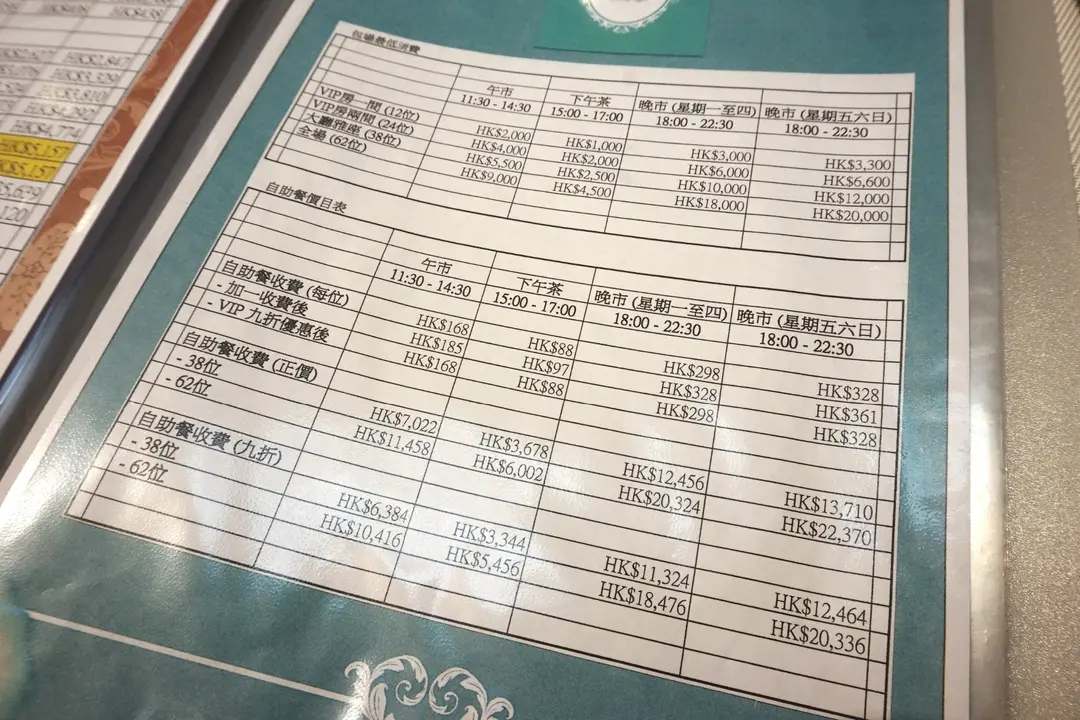 包場最低消費
午市 下午茶 晚市 (星期一至四) 晚市 (星期五六日)
11:30 - 14:30 15:00 - 17:00 18:00 - 22:30 18:00 - 22:30
VIP房一間 (12位) HK$2,000 HK$1,000 HK$3,000 HK$3,300
VIP房兩間 (24位) HK$4,000 HK$2,000 HK$6,000 HK$6,600
大廳雅座 (38位) HK$5,500 HK$2,500 HK$10,000 HK$12,000
全場 (62位) HK$9,000 HK$4,500 HK$18,000 HK$20,000
自助餐價目表
午市 下午茶 晚市 (星期一至四) 晚市 (星期五六日)
11:30 - 14:30 15:00 - 17:00 18:00 - 22:30 18:00 - 22:30
自助餐收費 (每位) HK$168 HK$88 HK$298 HK$328
- 加一收費後 HK$185 HK$97 HK$328 HK$361
- VIP 九折優惠後 HK$168 HK$88 HK$298 HK$328
自助餐收費 (正價)
- 38位 HK$7,022 HK$3,678 HK$12,456 HK$13,710
- 62位 HK$11,458 HK$6,002 HK$20,324 HK$22,370
自助餐收費 (九折)
- 38位 HK$6,384 HK$3,344 HK$11,324 HK$12,464
- 62位 HK$10,416 HK$5,456 HK$18,476 HK$20,336